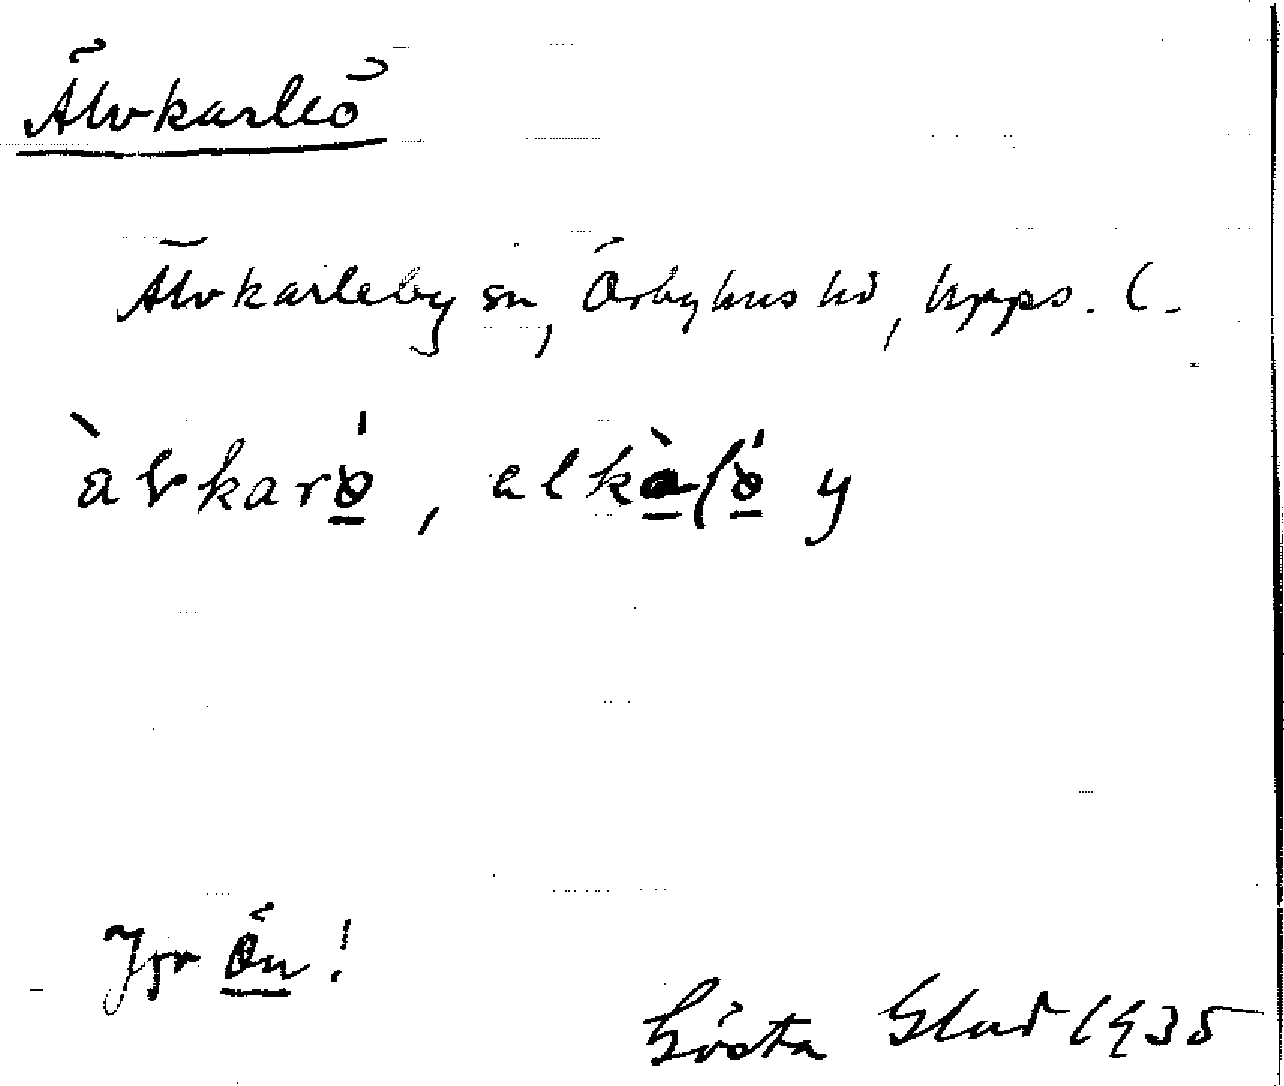 Älvkarleö
Älvkarleby sn, Örbyhus hd, Upps. l.
àvkarö́, alkàlö́ y
Jfr Ön!
Gösta Glad 1935